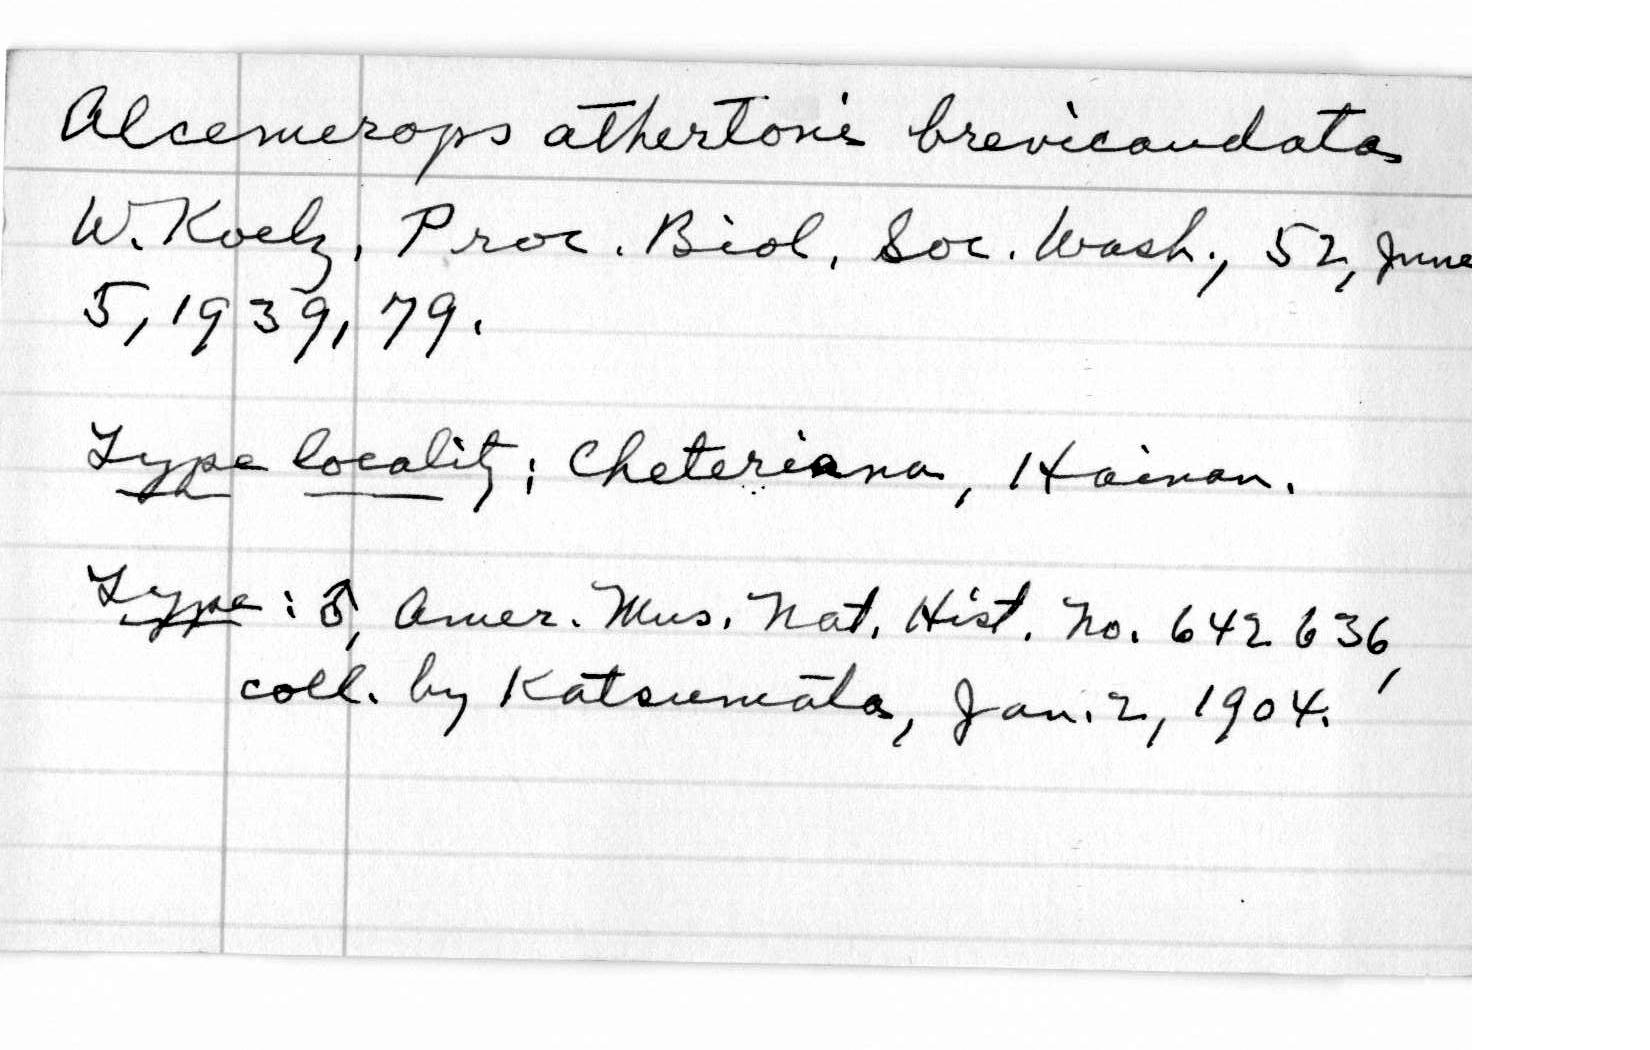 Alcemerops athertoni brevicaudata
W. Koelz, Proc. Biol. Soc. Wash., 52, June
5, 1939, 79.
Type locality; Cheteriana, Hainan.
Type: ♂, Amer. Mus. Nat. Hist. No. 642636,
coll. by Katsumata, Jan. 2, 1904.